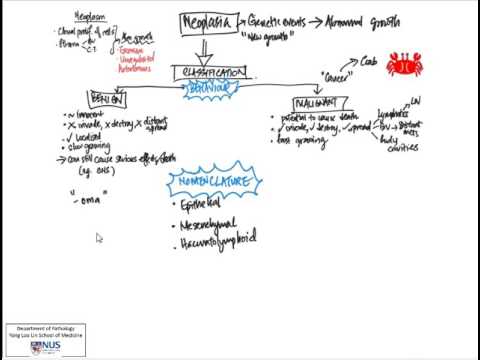 Neoplasm
• Clonal prolif. of cells
• Stroma
BV
C.T.
• Excessive
• Unregulated
• Autonomous
Neoplasia → Genetic events → Abnormal growth
"New growth"
CLASSIFICATION
BEHAVIOUR
"Cancer"
Crab
BENIGN
• ∝ innocent
• X invade, X destroy, X distant spread
• ✓ localised
• slow growing
→ can still cause serious effects/death
(eg. CNS)
"-oma"
MALIGNANT
• potential to cause death
• ✓ invade, ✓ destroy, ✓ spread
• fast growing
Lymphatics
LN
BV → Distant mets
body cavities
NOMENCLATURE
• Epithelial
• Mesenchymal
• Haematolymphoid
Department of Pathology
Yong Loo Lin School of Medicine
NUS